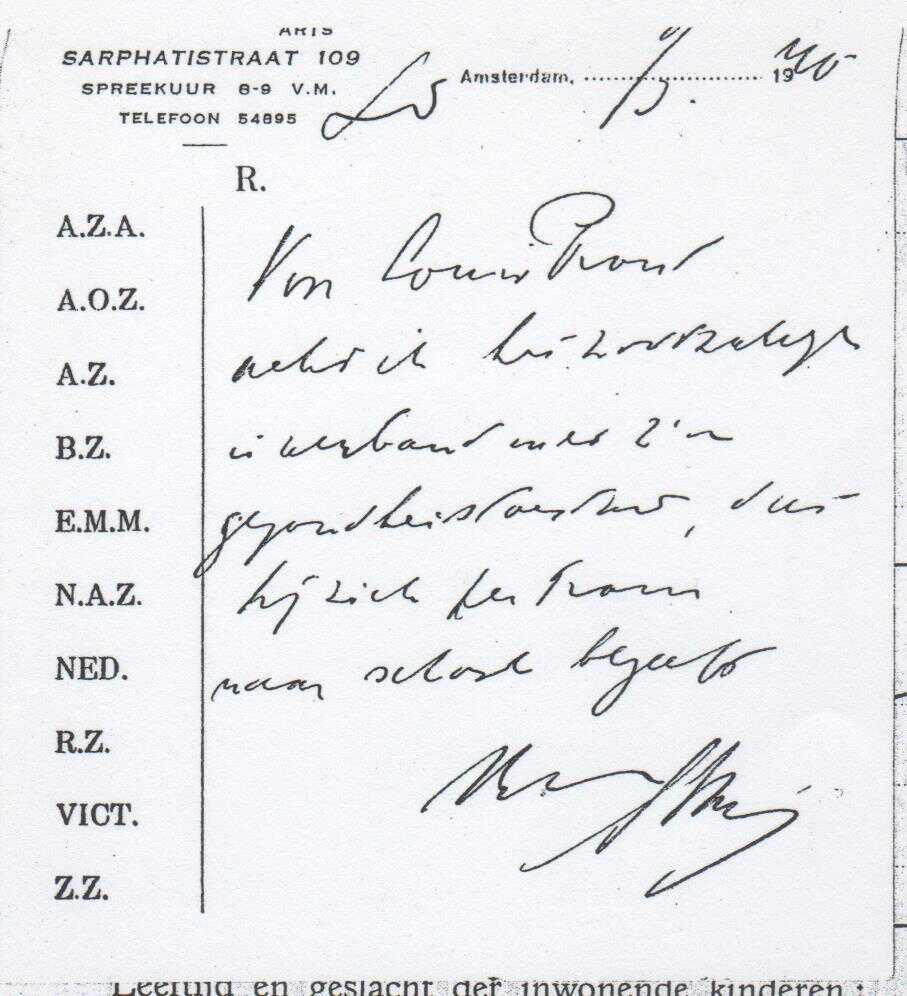 ARTS
SARPHATISTRAAT 109
SPREEKUUR 8-9 V.M.
TELEFOON 54895
Amsterdam, 1940
R.
A.Z.A.
A.O.Z.
A.Z.
B.Z.
E.M.M.
N.A.Z.
NED.
R.Z.
VICT.
Z.Z.
Van Louis
acht ik het noodzakelijk
in verband met z'n
gezondheidstoestand, dat
hij zich per tram
naar school begeeft
Leeftijd en geslacht der inwonende kinderen: